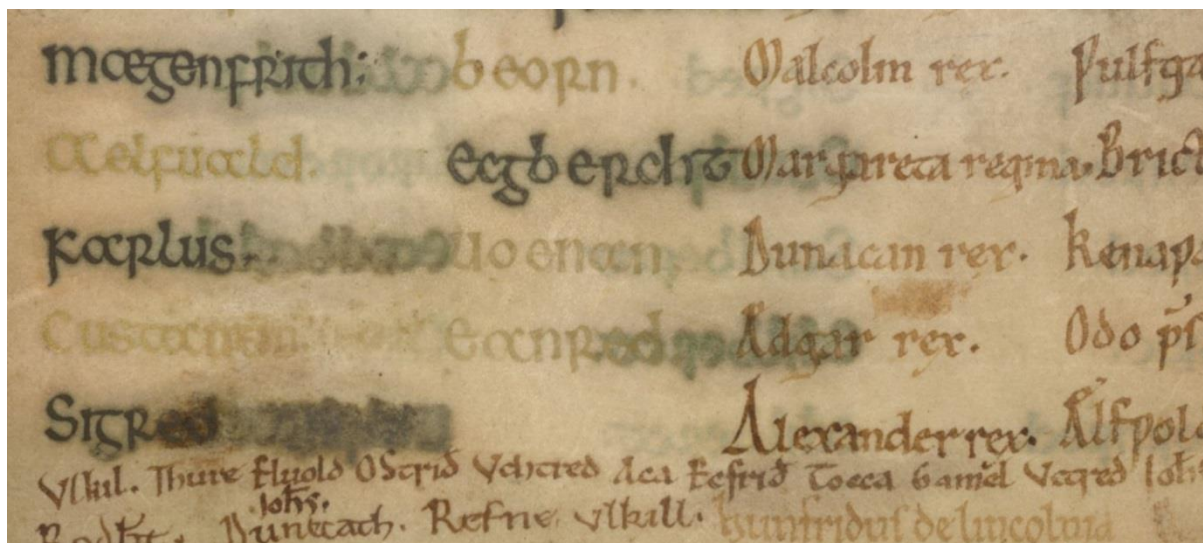 mægenfrith: beorn. Malcolm rex.
Aelfuald. ecgbercht Margareta regina.
karlus. uoenan, Dunacan rex.
Custantin Eanred Adgar rex. Odo
Sigred Alexander rex. Alfpold
Vlkil. Thure Eluold Ostrið Vhtred Aca Ecfrið Tocca Gamel Vctred Ioh̄
Ioh̄s.
Dunecach. Refne, vlkill. hunfridus de lincolnia